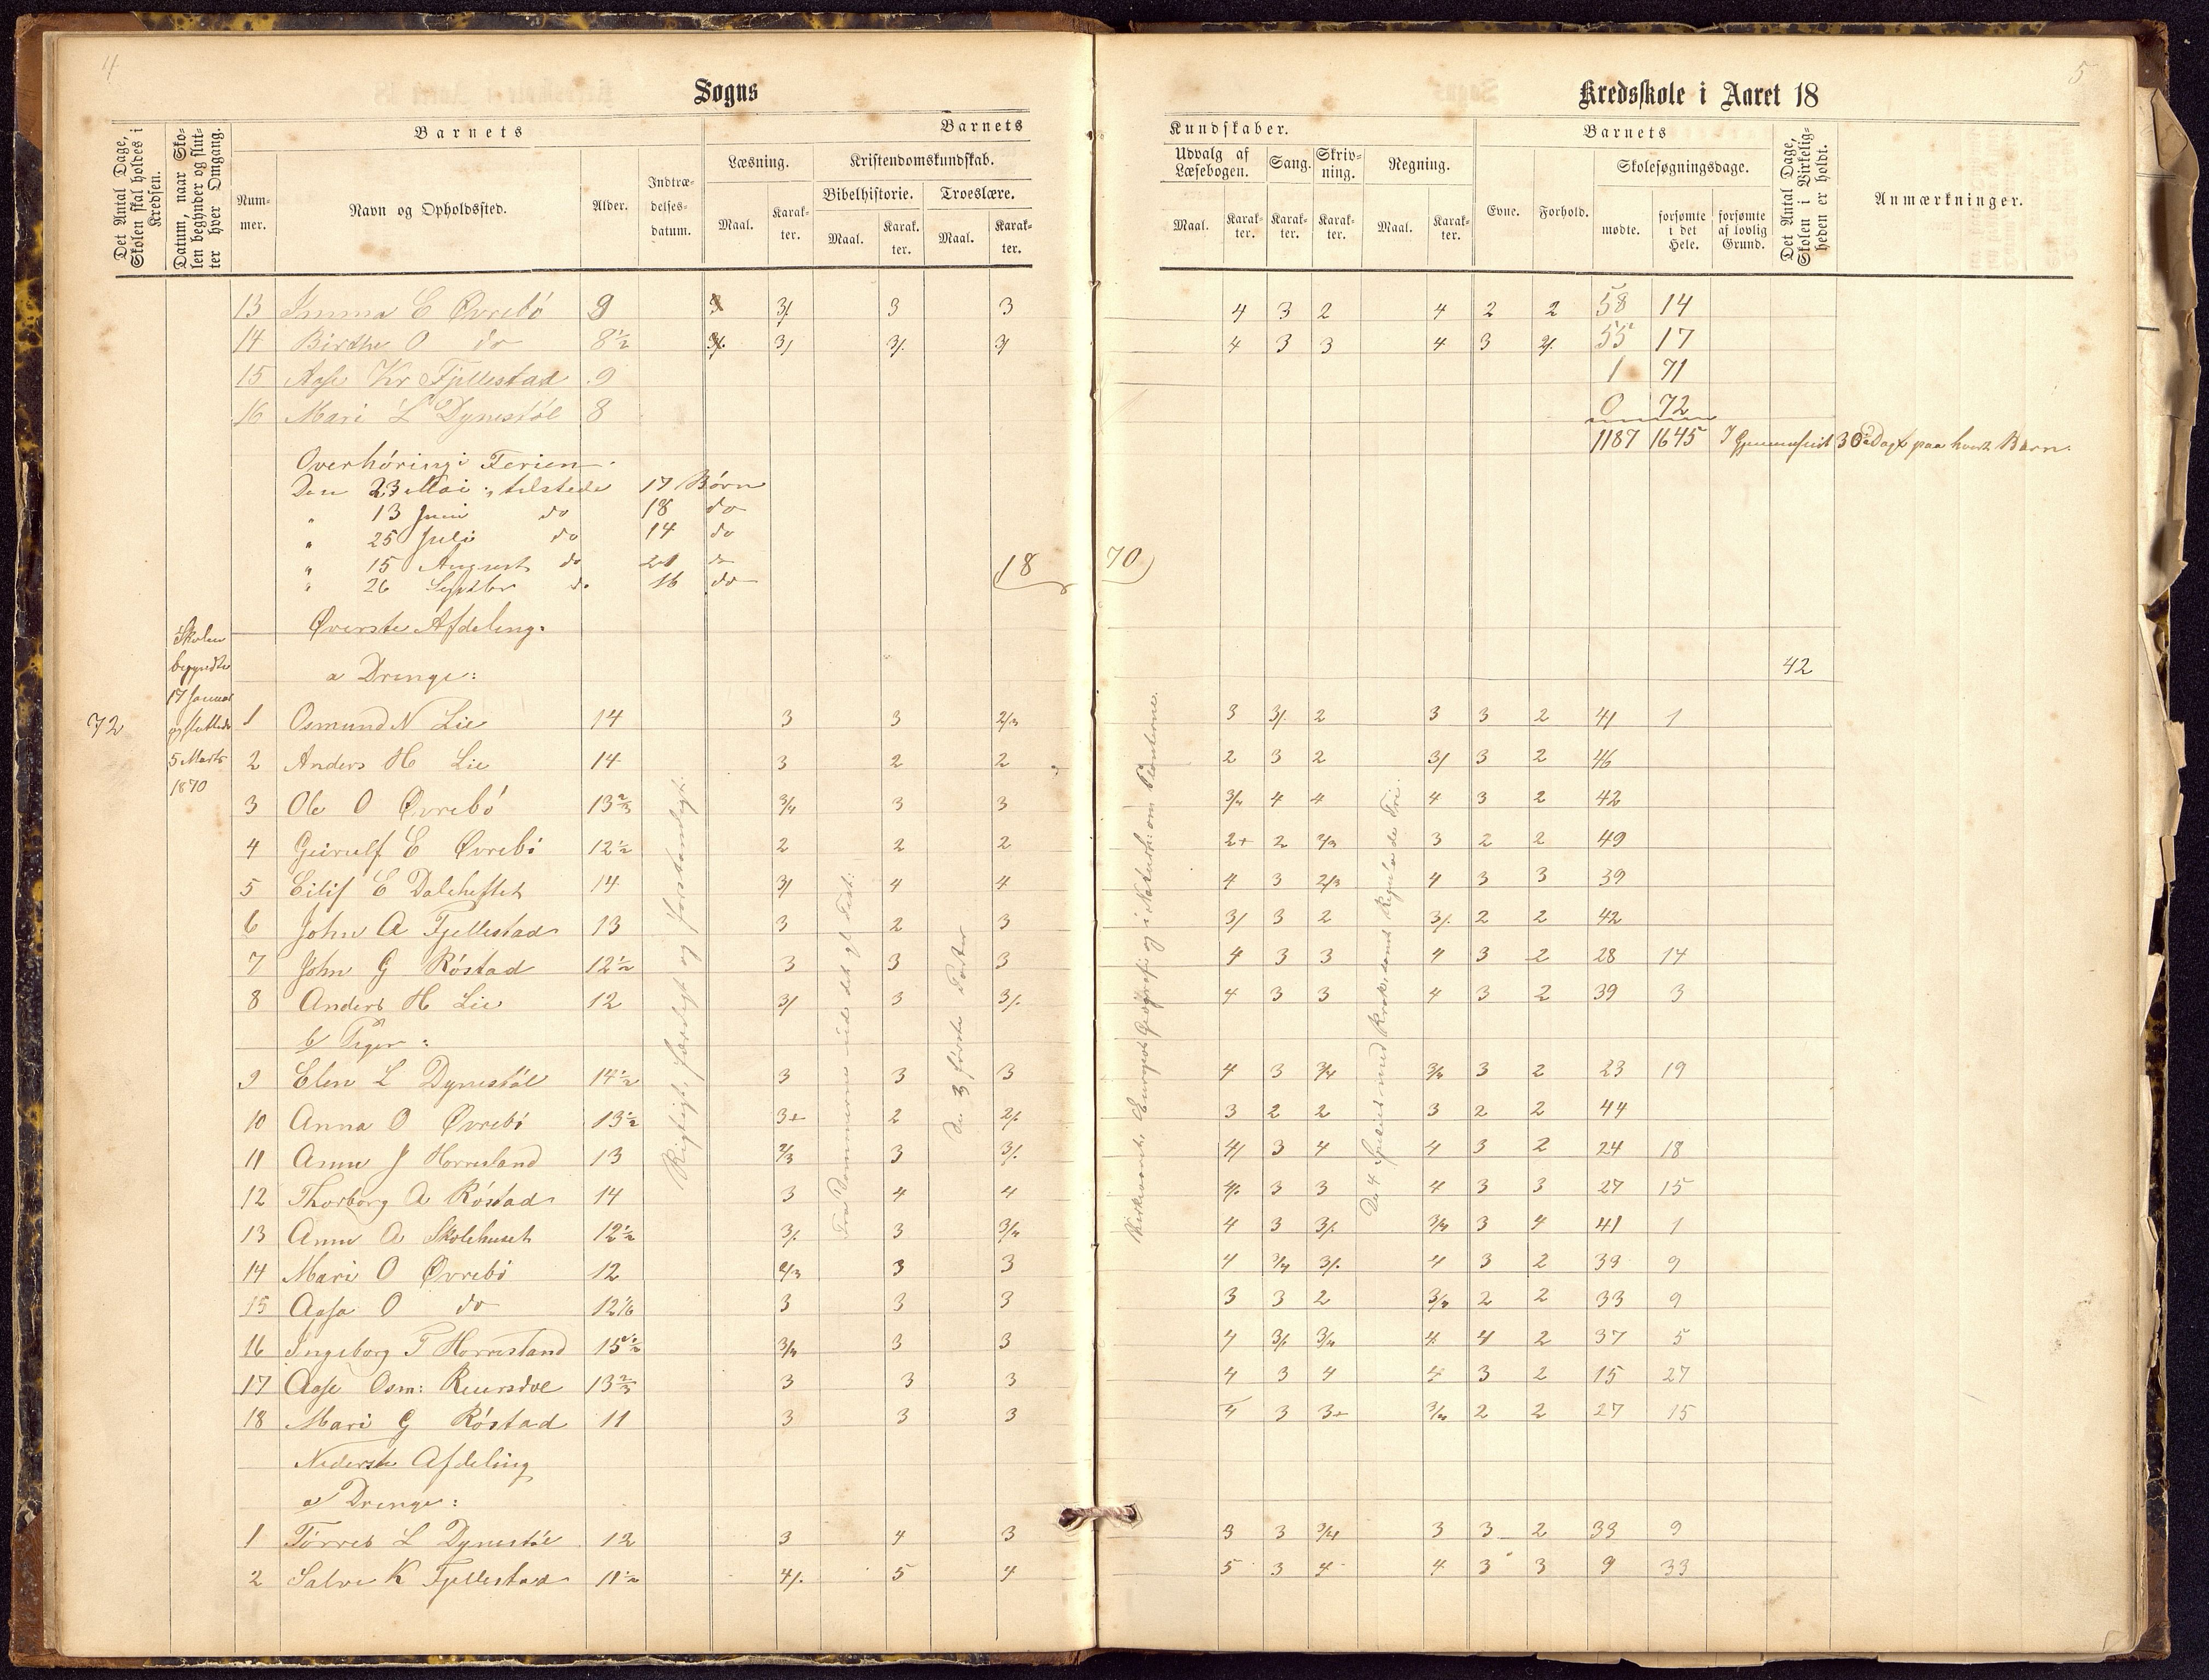 4
Sogns
Det Antal Dage, Skolen skal holdes i Kredsen.
Datum, naar Skolen begynder og slutter hver Omgang.
Barnets
Nummer.
Navn og Opholdssted.
Alder.
Indtrædelsesdatum.
Barnets
Læsning.
Kristendomskundskab.
Bibelhistorie.
Troeslære.
Maal. Karakter. Maal. Karakter. Maal. Karakter.
13 Emma E Øvrebö 9 3 3/ 3 3
14 Birthe O do 8½ 3/. 3/ 3/. 3/
15 Aase Kr Fjellestad 9
16 Mari L Dynestöl 8
Overhöring i Ferien.
Den 23 Mai: tilstede 17 Börn
" 13 Juni do 18 do
" 25 Juli do 14 do
" 15 August do 21 do
" 26 Septbr do 16 do
18
Øverste Afdeling.
a Drenge:
72
Skolen begyndte 17 Januar og sluttede 5 Marts 1870
1 Osmund N Lie 14 3 3 2/3
2 Anders H Lie 14 3 2 2
3 Ole O Øvrebö 13⅔ 3/4 3 3
4 Geirulf E Øvrebö 12½ 2 2 2
5 Eilif E Daleheftet 14 3/ 4 4
6 John A Fjellestad 13 3 2 3
7 John G Röstad 12½ 3 3 3
8 Anders H Lie 12 3/ 3 3/.
b/ Piger:
9 Elen L Dynestöl 14½ 3 3 3
10 Anna O Øvrebö 13½ 3+ 2 2/.
11 Anne J Horresland 13 2/3 3 3/.
12 Thorborg A Röstad 14 3 4 4
13 Anne A Skolehuset 12½ 3/. 3 3/4
14 Mari O Øvrebö 12 2/3 3 3
15 Aase O do 12 1/6 3 3 3
16 Ingeborg T Horresland 15½ 3/4 3 3
17 Aase Osm: Reiersdal 13⅔ 3 3 3
18 Mari G Röstad 11 3 3 3
Rigtigt, færdigt og forstandigt.
Fra Dommerne ud det gl Test:
De 3 förste Parter
Nederste Afdeling
a/ Drenge:
1 Törres L Dynestöl 12 3 4 3
2 Salve K Fjellestad 11½ 4/. 5 4
5
Kredsskole i Aaret 18
Kundskaber.
Udvalg af Læsebogen.
Sang.
Skrivning.
Regning.
Maal. Karakter. Karakter. Karakter. Maal. Karakter.
Barnets
Evne. Forhold.
Skolesøgningsdage.
mødte.
forsømte i det Hele.
forsømte af lovlig Grund.
Det Antal Dage, Skolen i Virkeligheden er holdt.
Anmærkninger.
4 3 2 4 2 2 58 14
4 3 3 4 3 2/. 55 17
1 71
0 72
1187 1645 I Gjennemsnit 30 Dage paa hvert Barn.
70
42
3 3/. 2 3 3 2 41 1
2 3 2 3/ 3 2 46
3/4 4 4 4 3 2 42
2+ 2 2/3 3 2 2 49
4 3 2/3 4 3 3 39
3/ 3 2 3/. 2 2 42
4 3 3 4 3 2 28 14
4 3 3 4 3 2 39 3
4 3 3/4 3/4 3 2 23 19
3 2 2 3 2 2 44
4/ 3 4 4 3 2 24 18
4/. 3 3 4 3 3 27 15
4 3 3/. 3/4 3 4 41 1
4 3/4 3/. 4 3 2 33 9
3 3 2 3/4 2 2 33 9
4 3/. 3/4 4 4 2 37 5
4 3 4 4 3 2 15 27
4 3 3+ 3/4 2 2 27 15
Europas Geografi og i Naturh: om Planterne.
De 4 Species med Brøk, samt Regula de Tri.
3 3 3/4 3 3 2 33 9
5 3 4 4 3 3 9 33